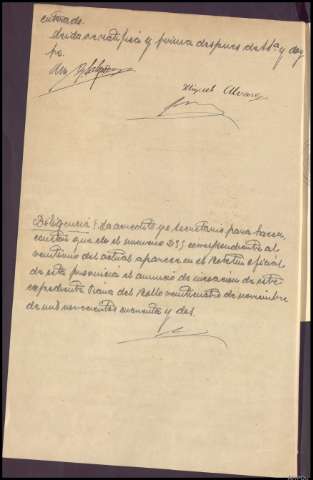 enterado.
leida se ratifica y firma despues de S.Sª y doy
fe.
Miguel Alvarez
Diligencia: La acredito yo Secretario para hacer
constar que en el numero 255 correspondiente al
del actual aparece en el Boletin oficial
de esta provincia el anuncio de incoacion de este
expediente. veinticuatro de noviembre
de mil novecientos cuarenta y dos